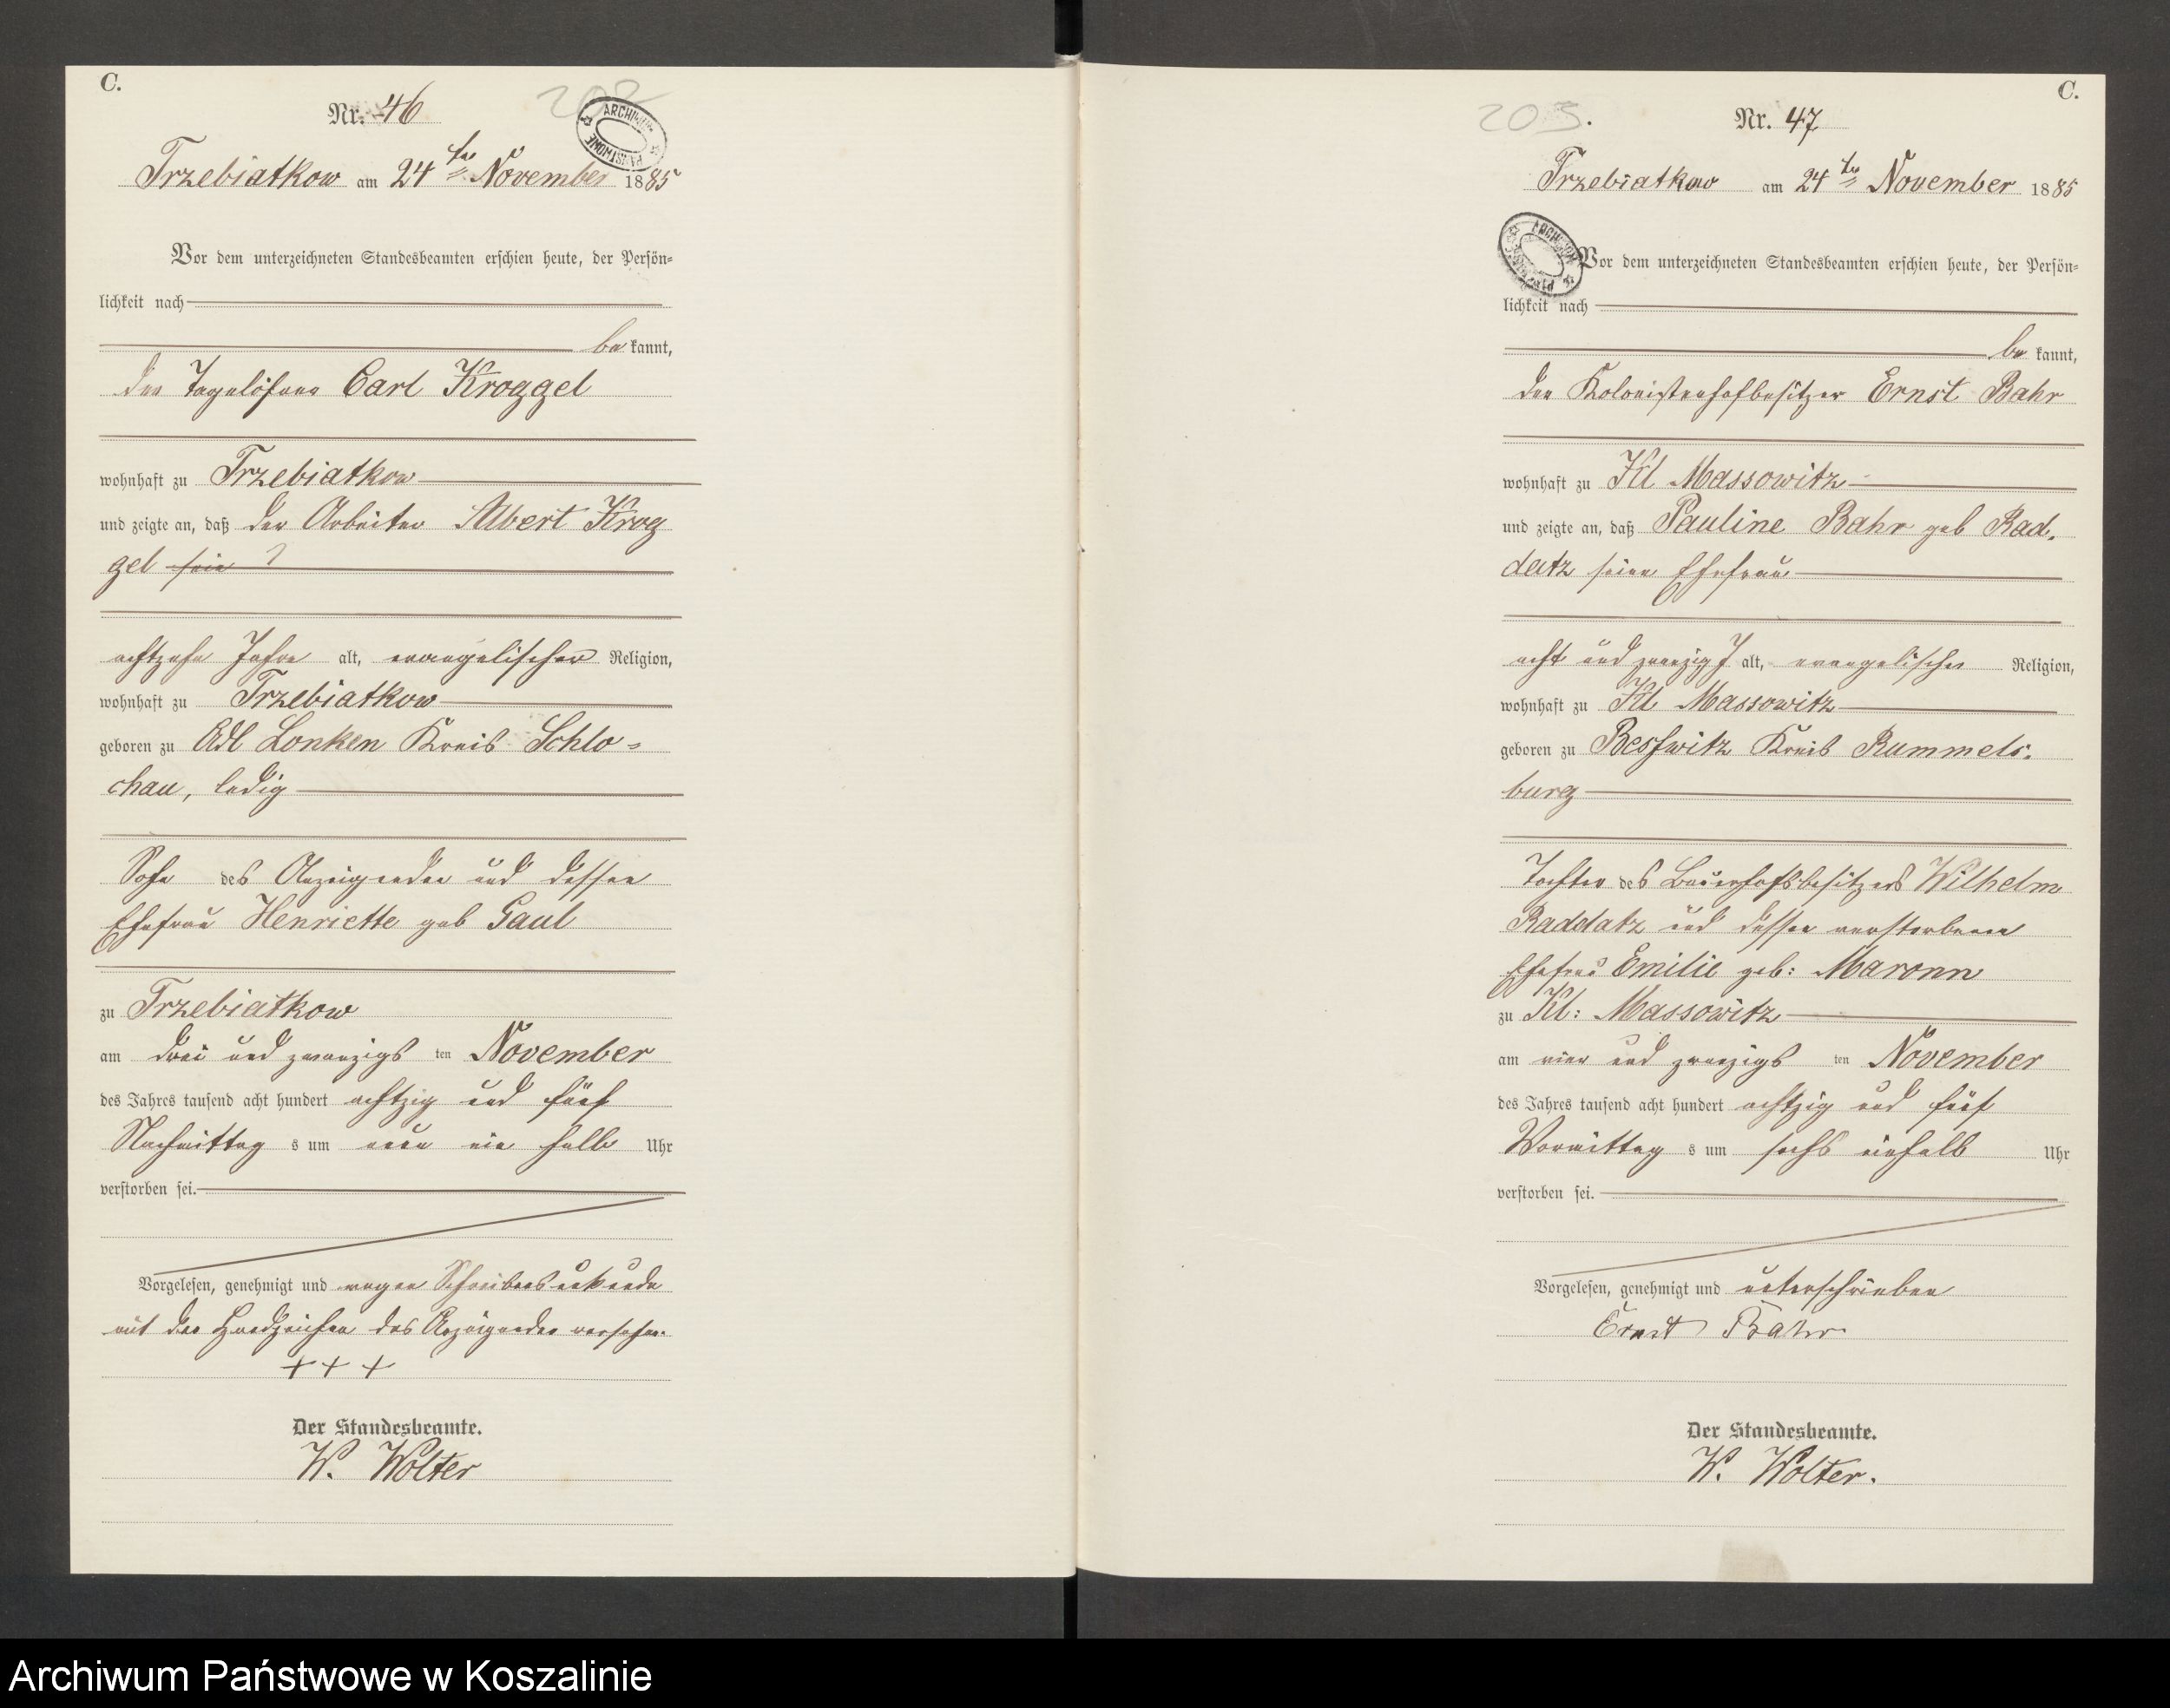 C.
Nr. 46
202
ARCHIWUM PAŃSTWOWE
Trzebiatkow am 24ten November 1885
Vor dem unterzeichneten Standesbeamten erschien heute, der Persön=
lichkeit nach
be kannt,
der Tagelöhner Carl Kroggel
wohnhaft zu Trzebiatkow
und zeigte an, daß der Arbeiter Albert Krog
gel sein
achtzehn Jahre alt, evangelischer Religion,
wohnhaft zu Trzebiatkow
geboren zu Adl Lonken Kreis Schlo=
chau, ledig
Sohn des Anzeigenden und dessen
Ehefrau Henriette geb Gaul
zu Trzebiatkow
am drei und zwanzigs ten November
des Jahres tausend acht hundert achtzig und fünf
Nachmittag s um neun ein halb Uhr
verstorben sei.
Vorgelesen, genehmigt und wegen Schreibensunkunde
mit den Handzeichen des Anzeigenden versehen.
+++
Der Standesbeamte.
W. Wolter
C.
203.
Nr. 47
Trzebiatkow am 24ten November 1885
ARCHIWUM PAŃSTWOWE
Vor dem unterzeichneten Standesbeamten erschien heute, der Persön=
lichkeit nach
be kannt,
der Kolonistenhofbesitzer Ernst Bahr
wohnhaft zu Kl Massowitz
und zeigte an, daß Pauline Bahr geb Rad.
datz seine Ehefrau
acht und zwanzig J alt, evangelischer Religion,
wohnhaft zu Kl Massowitz
geboren zu Besswitz Kreis Rummels.
burg
Tochter des Bauerhofsbesitzers Wilhelm
Raddatz und dessen verstorbenen
Ehefrau Emilie geb: Maronn
zu Kl: Massowitz
am vier und zwanzigs ten November
des Jahres tausend acht hundert achtzig und fünf
Vormittag s um sechs einhalb Uhr
verstorben sei.
Vorgelesen, genehmigt und unterschrieben
Ernst Bahr
Der Standesbeamte.
W. Wolter.
Archiwum Państwowe w Koszalinie